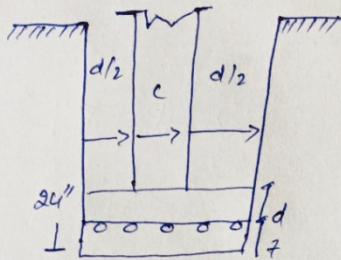 d/2 c d/2
24"
d
7